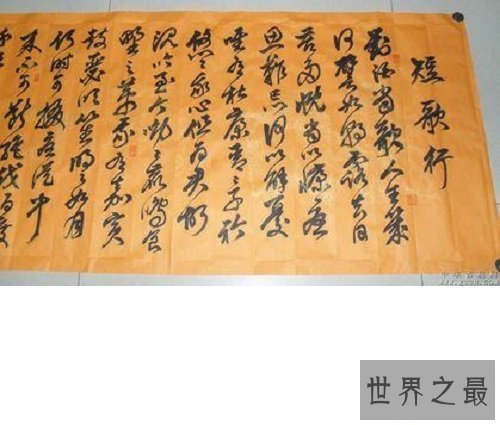 短歌行
對酒當歌人生幾
何譬如朝露去日
苦多慨當以慷憂
思難忘何以解憂
唯有杜康青青子衿
悠悠我心但为君故
沈吟至今呦呦鹿鳴食
野之苹我有嘉賓
鼓瑟吹笙明明如月
何時可掇憂從中
来不可斷
世界之最